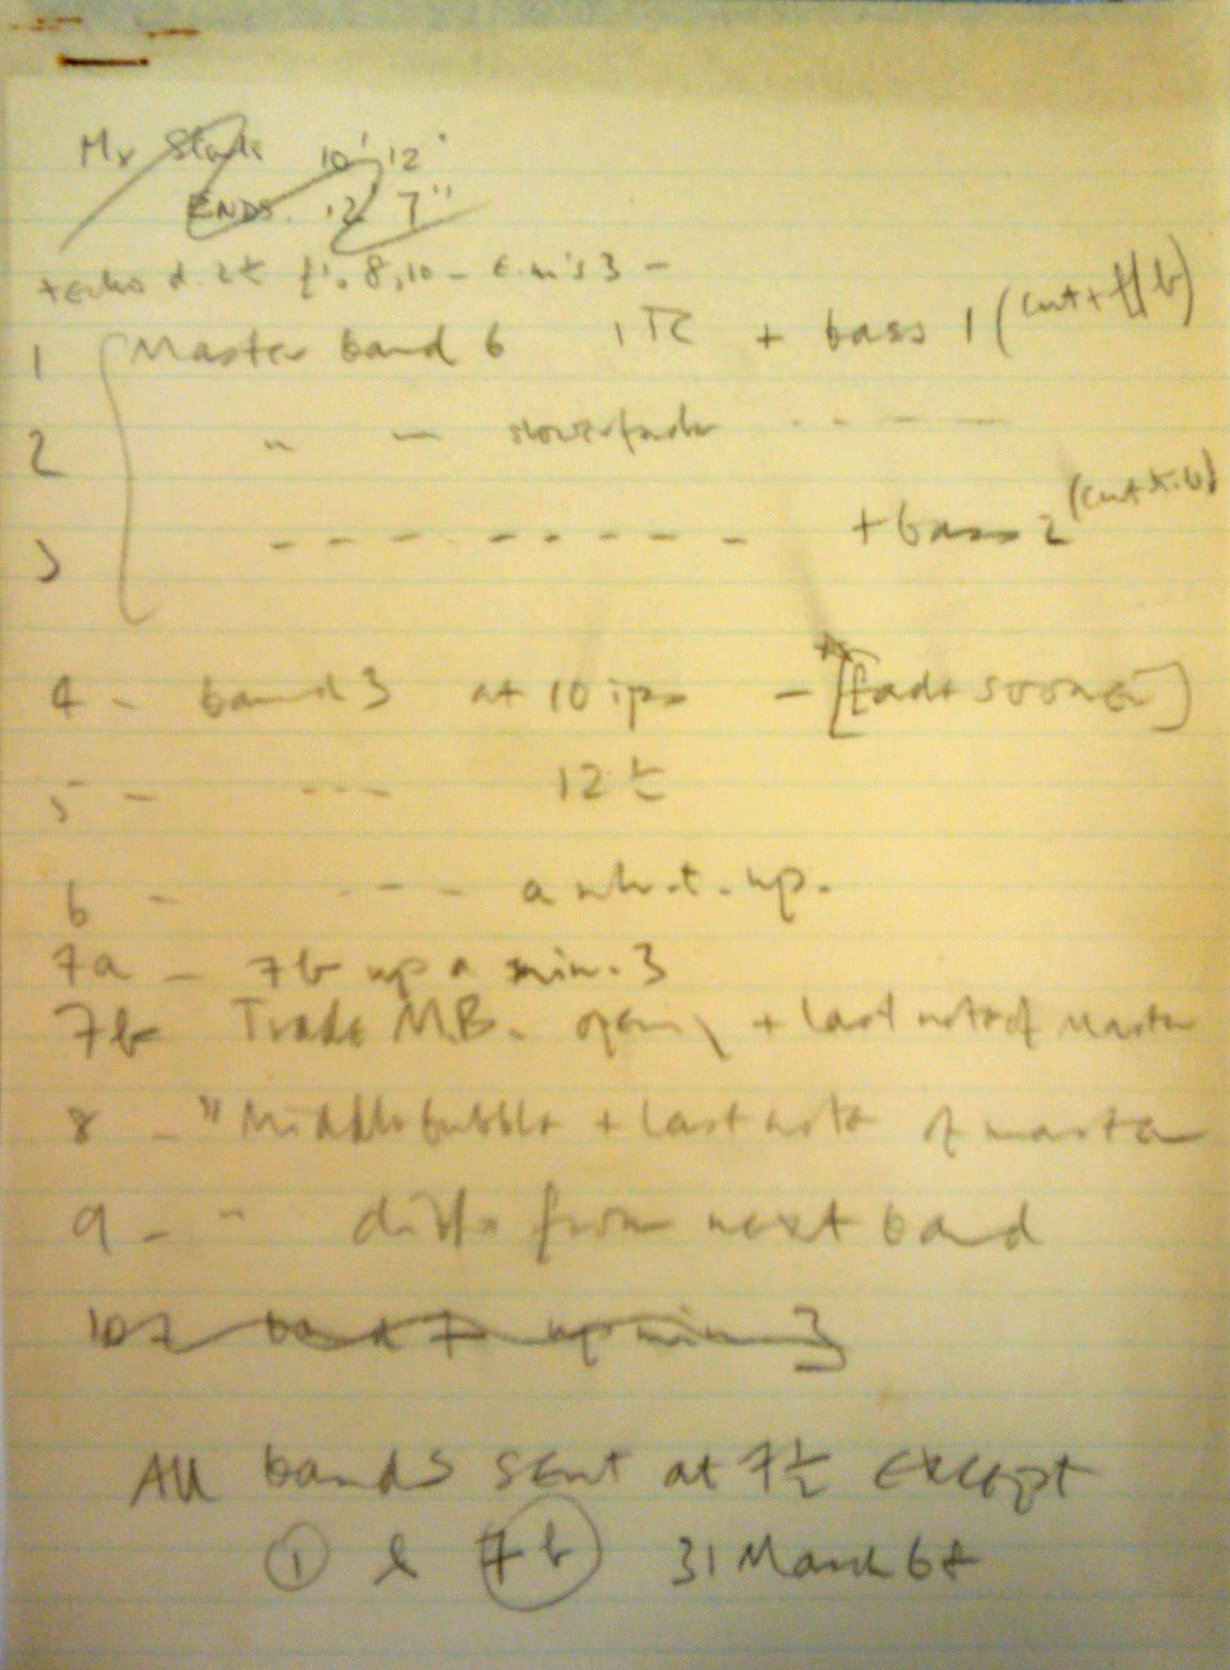 Mx Starts 10' 12"
ENDS. 12' 7"
+echo 8, 10 -
1 Master band 6 + bass 1 (cut
2 " — slower fade - - - -
3 - - - - - - - - + bass 2 (cut
4 - band 3 at 10 ips - [fade sooner]
5 - - - - 12 ½
6 - - - - a up.
7a - 7b up a min. 3
7b Trade MB. + last note of Master
8 - " Middle bubble + last note of master
9 - " ditto from next band
10 band 7 up min 3
All bands sent at 7½ except
① & 7b 31 March 68